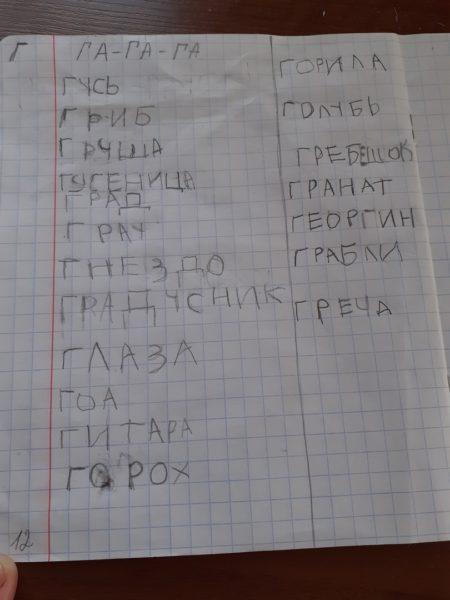 Г ГА-ГА-ГА
ГУСЬ
ГРИБ
ГРУША
ГУСЕНИЦА
ГРАД
ГРАЧ
ГНЕЗДО
ГРАДУСНИК
ГЛАЗА
ГОА
ГИТАРА
ГОРОХ
12
ГОРИЛА
ГОЛУБЬ
ГРЕБЕШОК
ГРАНАТ
ГЕОРГИН
ГРАБЛИ
ГРЕЧА